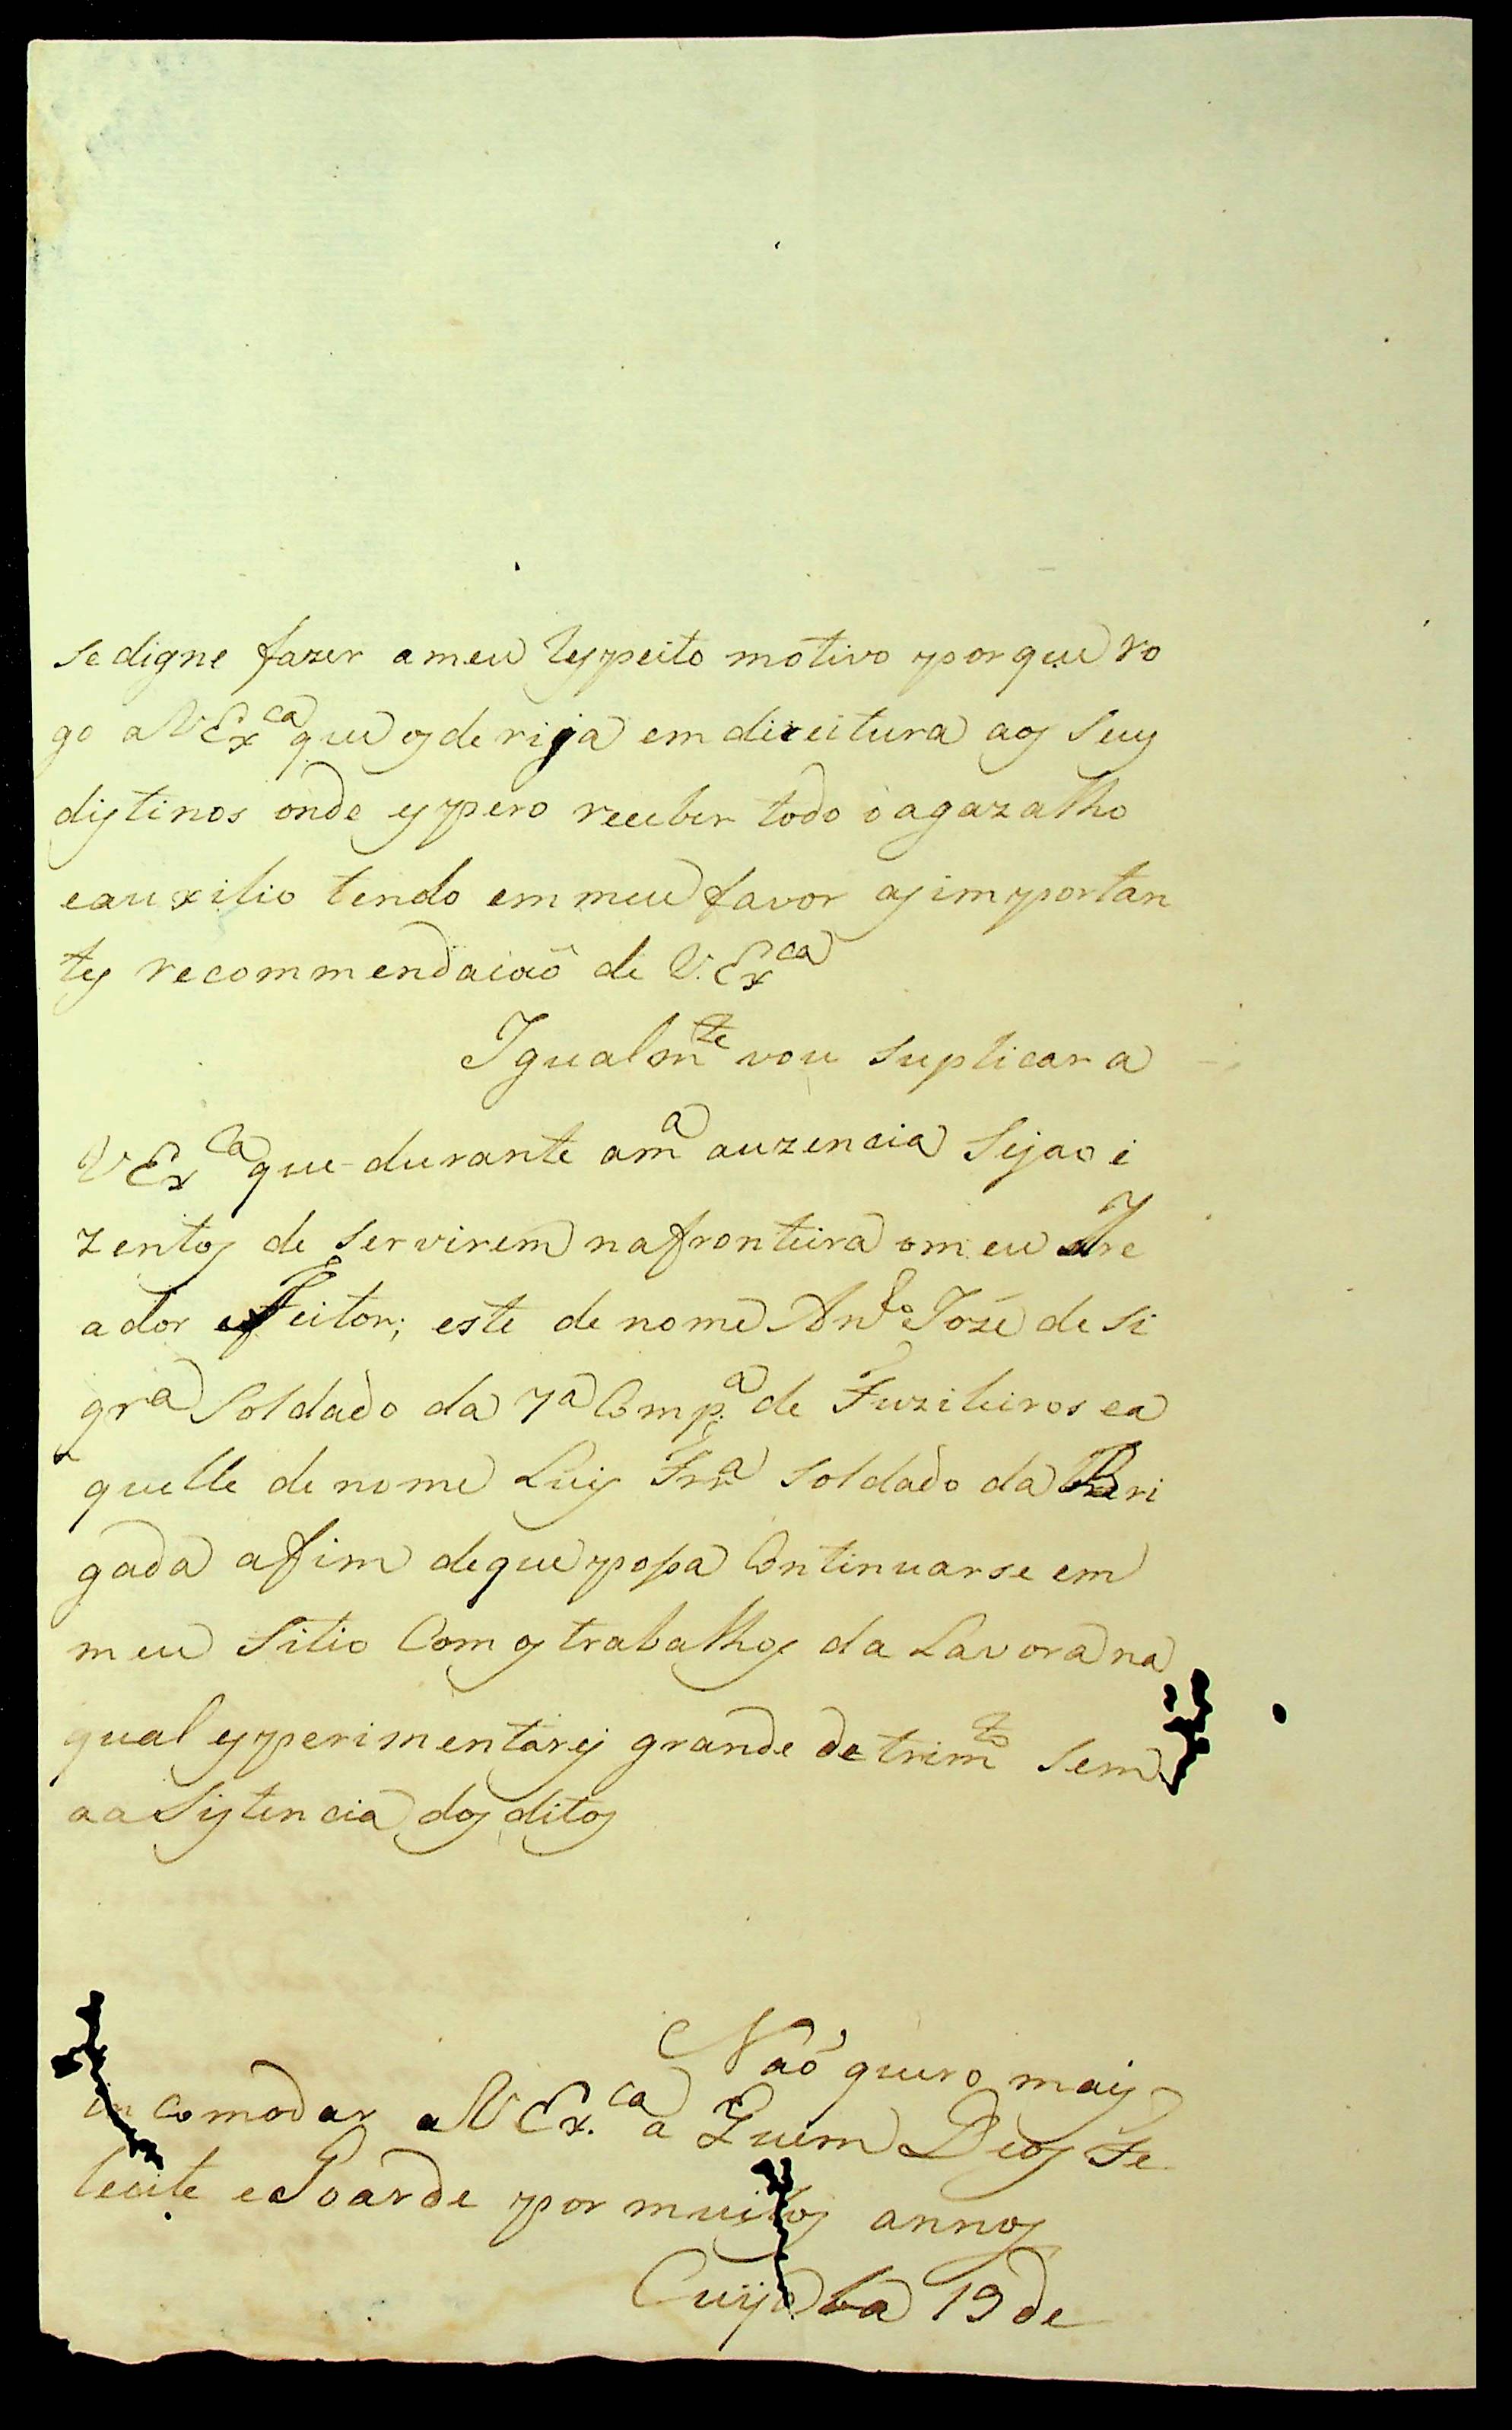 se digne fazer ameu Respeito motivo porque ro
go a V Ex.ca que os derija em direitura aos Seus
distinos onde espero receber todo o agazalho
e auxilio tendo em meu favor as importan
tes recommendacaõ de V. Ex.ca
Igualmte vou suplicar a
V Ex.ca que durante a ma auzencia Sejao i
zentos de servirem na fronteira o meu
ador e Feitor; este de nome Anto José de Si
qra Soldado da 7a Compa de Fuzileiros ea
quelle de nome Luis Frra Soldado da Bri
gada afim de que possa Continuarse em
meu Sitio Com os trabalhos da Lavora na
qual esperimentarei grande detrimto sem
a aSistencia dos ditos
Naõ quero mais
incomodar a V Ex.ca a Quem Deos Fe
lecite e Goarde por muitos annos
Cuyabá 19 de